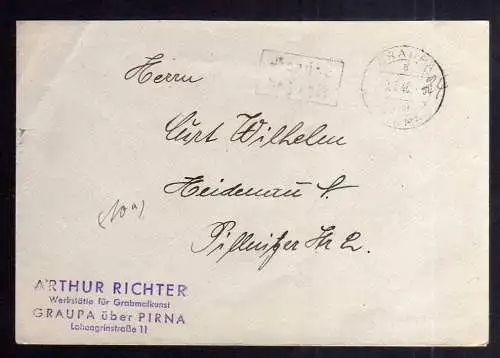 GRAUPA
Herrn
Curt Wilhelm
Heidenau
Pillnitzer Str 2.
(10a)
ARTHUR RICHTER
Werkstätte für Grabmalkunst
GRAUPA über PIRNA
Lohengrinstraße 11